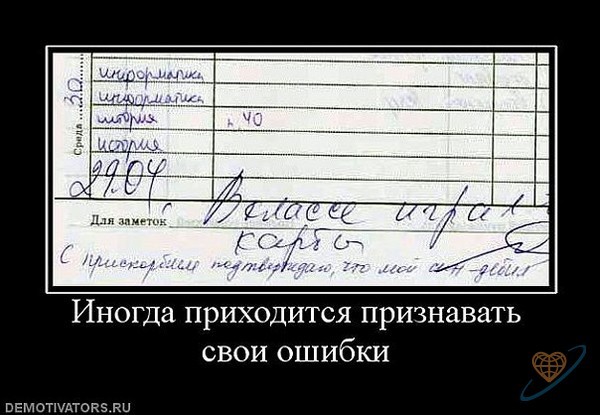 Среда ..... 30
информатика
информатика
история п. 40
история
29.04
Для заметок В классе играл в
карты
С прискорбием подтверждаю, что мой сын - дебил
Иногда приходится признавать
свои ошибки
DEMOTIVATORS.RU